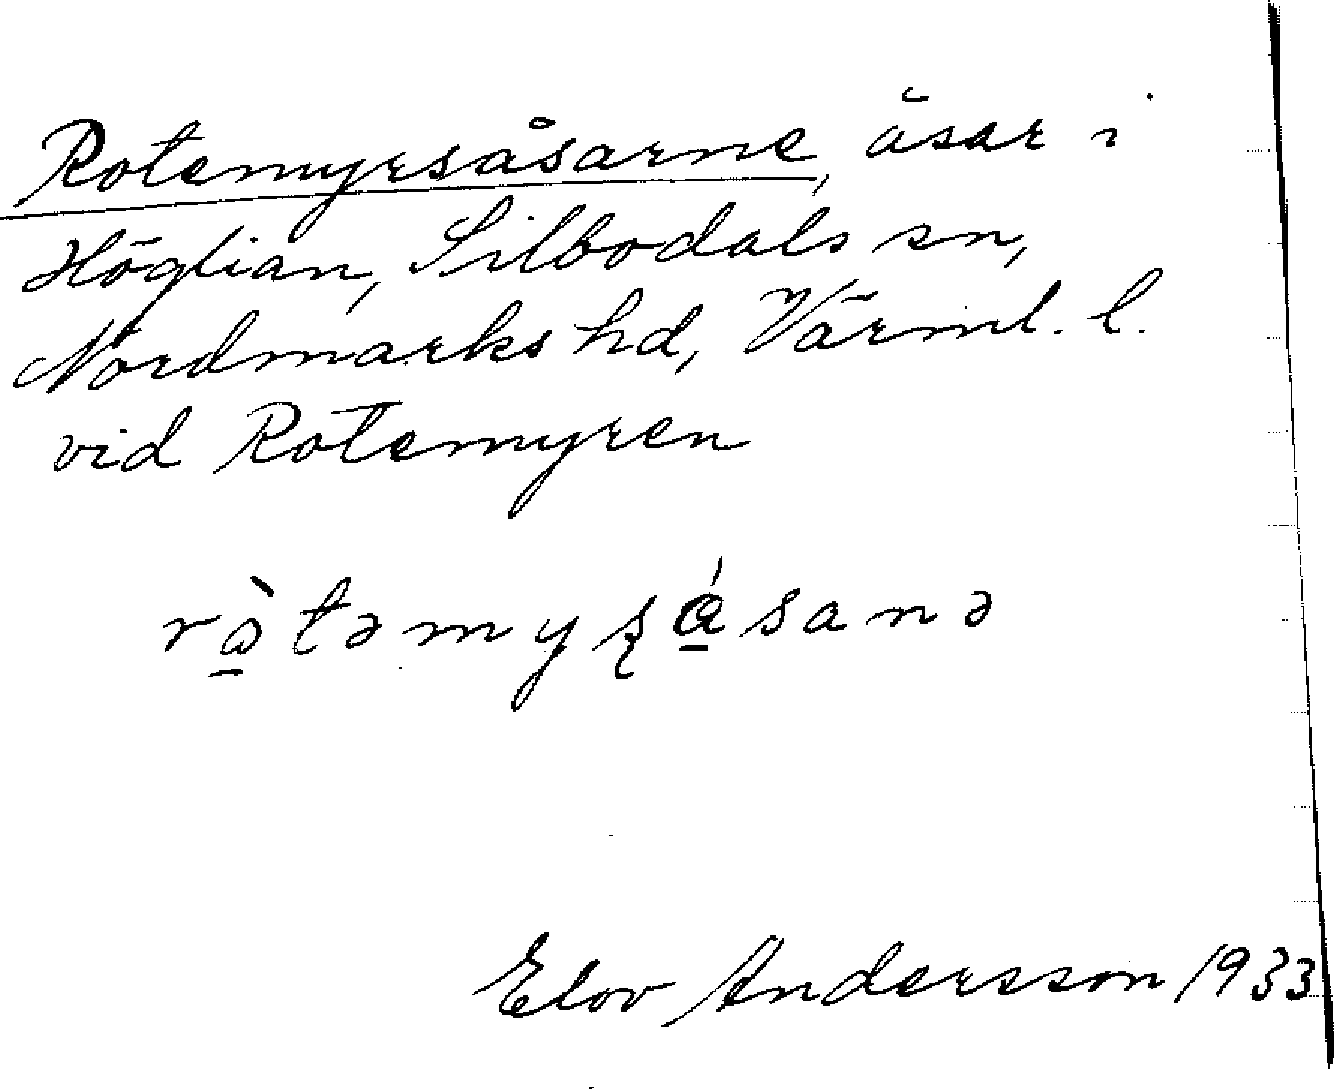 Rotemyrsåsarne, åsar i
Höglian, Silbodals sn,
Nordmarks hd, Värml. l.
vid Rotemyren
rò̱təmyʂá̱sanə
Elov Andersson 1933